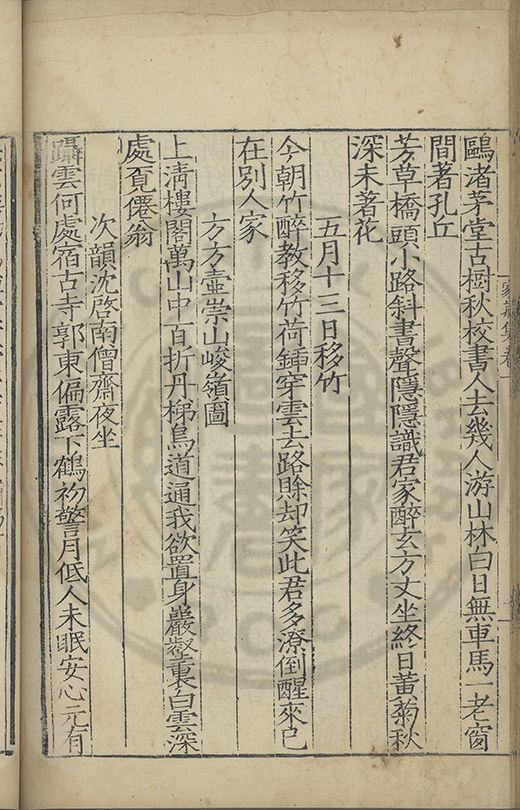 鷗渚茅堂古樹秋校書人去幾人游山林白日無車馬一老窗
間著孔丘
芳草橋頭小路斜書聲隱隱識君家醉玄方丈坐終日黃菊秋
深未著花
五月十三日移竹
今朝竹醉教移竹荷鍤穿雲去路賖却笑此君多潦倒醒來已
在別人家
方方壺崇山峻嶺圖
上清樓閣萬山中百折丹梯鳥道通我欲置身巖壑裏白雲深
處覓僊翁
次韻沈啓南僧齋夜坐
躡雲何處宿古寺郭東偏露下鶴初警月低人未眠安心元有